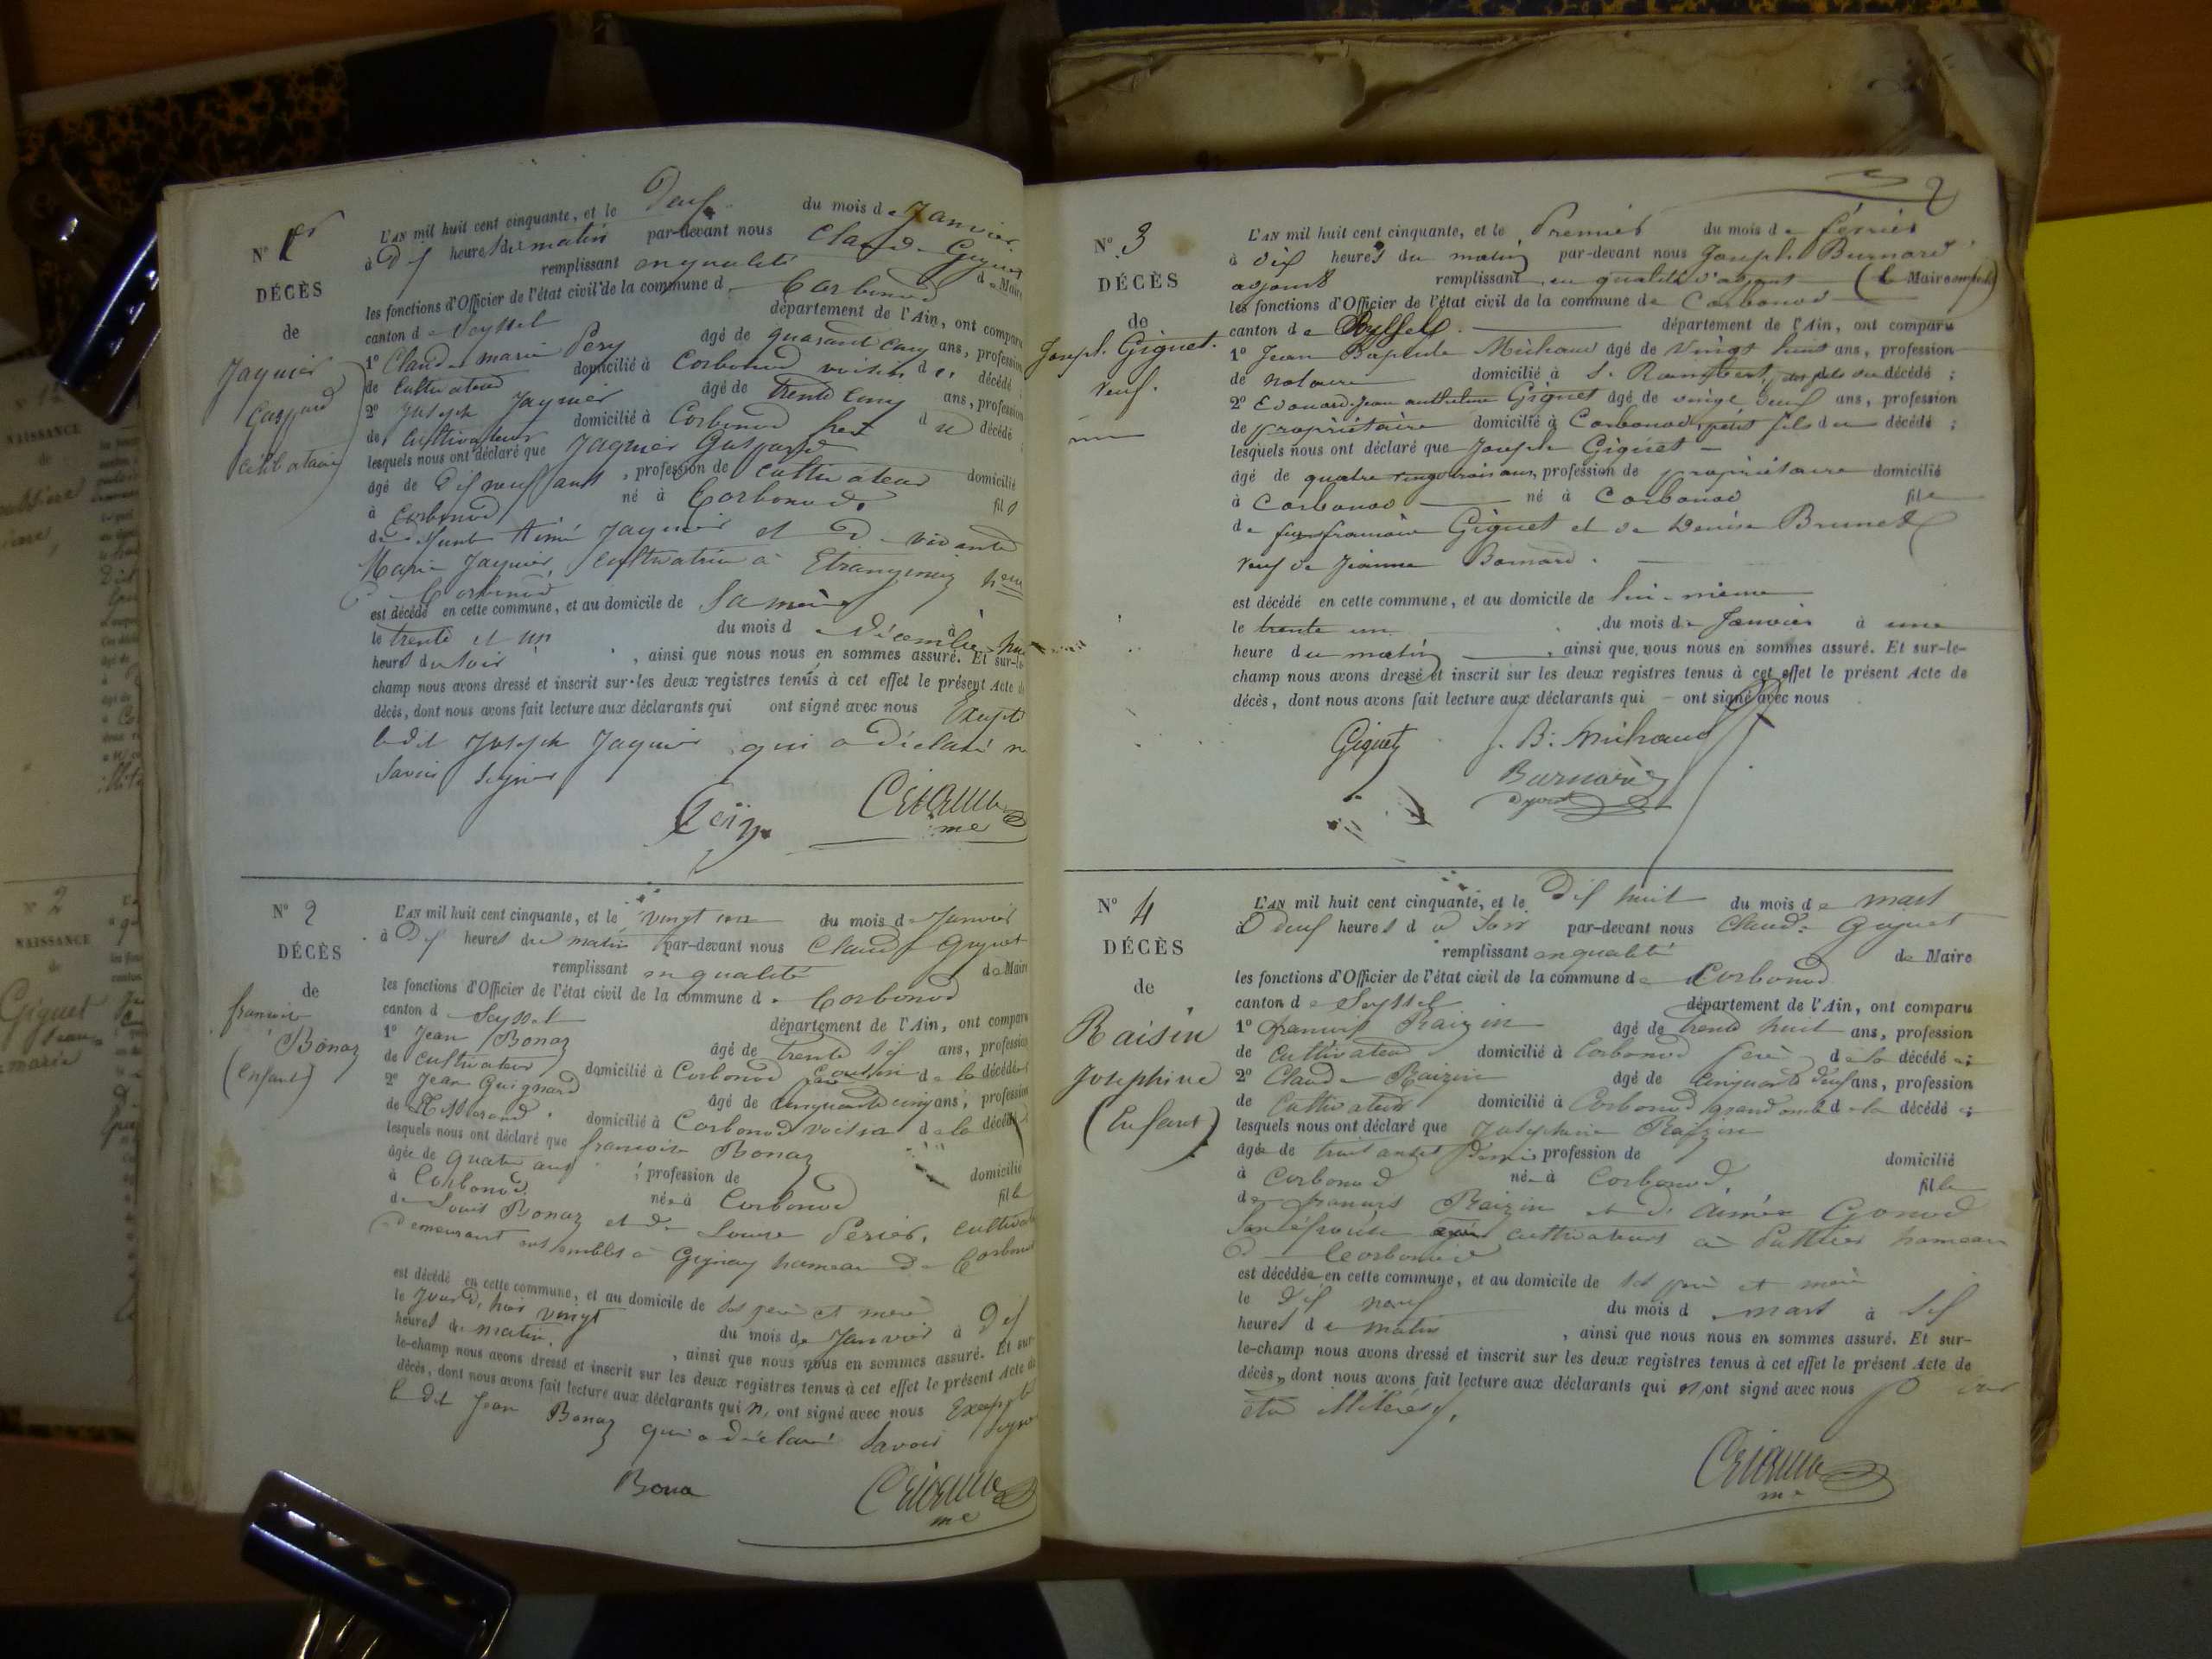 N° 1er
DÉCÈS
de
Jaquier
Gaspard
célibataire
L'AN mil huit cent cinquante, et le Deux du mois de Janvier
à Dix heures du matin par-devant nous Claude Giguet
remplissant en qualité de Maire
les fonctions d'Officier de l'état civil de la commune de Corbonod
canton de Seyssel département de l'Ain, ont comparu
1° Claude marie Pery âgé de quarante cinq ans, profession
de Cultivateur domicilié à Corbonod voisin du décédé
2° Joseph Jaquier âgé de trente cinq ans, profession
de Cultivateur domicilié à Corbonod du décédé ;
lesquels nous ont déclaré que Jaquier Gaspard
âgé de Dix neuf ans, profession de Cultivateur domicilié
à Corbonod né à Corbonod fils
de Aimé Jaquier et de vivante
Marie Jaquier, Cultivatrice à
de Corbonod
est décédé en cette commune, et au domicile de Sa mère
le trente et un du mois de Décembre à
heures du soir, ainsi que nous nous en sommes assuré. Et sur-le-
champ nous avons dressé et inscrit sur les deux registres tenus à cet effet le présent Acte de
décès, dont nous avons fait lecture aux déclarants qui ont signé avec nous Excepté
le dit Joseph Jaquier qui a déclaré ne
Savoir Signer
N° 2
DÉCÈS
de
francoise
Bonaz
(Enfant)
L'AN mil huit cent cinquante, et le vingt un du mois de Janvier
à Dix heures du matin par-devant nous Claude Giguet
remplissant en qualité de Maire
les fonctions d'Officier de l'état civil de la commune de Corbonod
canton de Seyssel département de l'Ain, ont comparu
1° Jean Bonaz âgé de trente Six ans, profession
de Cultivateur domicilié à Corbonod Cousin de la décédée
2° Jean Guignard âgé de Cinquante cinq ans, profession
de domicilié à Corbonod voisin de la décédée
lesquels nous ont déclaré que francoise Bonaz
âgée de quatre ans, profession de domicilié
à Corbonod née à Corbonod fille
de Louis Bonaz et de Louise Perier, Cultivateurs
Demeurant ensembles à Gignez hameau de Corbonod
est décédé en cette commune, et au domicile de Ses père et mère
le Jour d'hier vingt du mois de Janvier à Dix
heures du matin, ainsi que nous nous en sommes assuré. Et sur-
le-champ nous avons dressé et inscrit sur les deux registres tenus à cet effet le présent Acte de
décès, dont nous avons fait lecture aux déclarants qui n'ont signé avec nous Excepté
le dit Jean Bonaz qui a déclaré Savoir Signer
Bona
2
N° 3
DÉCÈS
de
Joseph Giguet.
veuf.
L'AN mil huit cent cinquante, et le Premier du mois de février
à dix heures du matin par-devant nous Joseph Burnard
adjoint remplissant en qualité d'adjoint (le Maire empêché)
les fonctions d'Officier de l'état civil de la commune de Corbonod
canton de Seyssel département de l'Ain, ont comparu
1° Jean Baptiste Michaud âgé de vingt huit ans, profession
de notaire domicilié à St Rambert, petit fils du décédé ;
2° Edouard Jean anthelme Giguet âgé de vingt deux ans, profession
de propriétaire domicilié à Corbonod, petit fils du décédé ;
lesquels nous ont déclaré que Joseph Giguet
âgé de quatre vingt trois ans, profession de propriétaire domicilié
à Corbonod né à Corbonod fils
de feu francois Giguet et de Denise Brunet
veuf de Jeanne Bornard.
est décédé en cette commune, et au domicile de lui-même
le trente un du mois de Janvier à une
heure du matin, ainsi que nous nous en sommes assuré. Et sur-le-
champ nous avons dressé et inscrit sur les deux registres tenus à cet effet le présent Acte de
décès, dont nous avons fait lecture aux déclarants qui ont signé avec nous
Giguet J. B. Michaud
Burnard
adjoint
N° 4
DÉCÈS
de
Raisin
Josephine
(Enfant)
L'AN mil huit cent cinquante, et le Dix huit du mois de mars
à Deux heures du Soir par-devant nous Claude Giguet
remplissant en qualité de Maire
les fonctions d'Officier de l'état civil de la commune de Corbonod
canton de Seyssel département de l'Ain, ont comparu
1° francois Raizin âgé de trente huit ans, profession
de Cultivateur domicilié à Corbonod père de la décédée ;
2° Claude Raizin âgé de Cinquante deux ans, profession
de Cultivateur domicilié à Corbonod grand oncle de la décédée ;
lesquels nous ont déclaré que Josephine Raizin
âgée de trois ans et Demi profession de domicilié
à Corbonod née à Corbonod, fille
de francois Raizin et de Aimée Gonod
Son épouse cultivateurs à hameau
de Corbonod
est décédée en cette commune, et au domicile de Ses père et mère
le Dix neuf du mois de mars à Six
heures du matin, ainsi que nous nous en sommes assuré. Et sur-
le-champ nous avons dressé et inscrit sur les deux registres tenus à cet effet le présent Acte de
décès, dont nous avons fait lecture aux déclarants qui n'ont signé avec nous pour
être illitérés.
N° 2
NAISSANCE
de
Giguet
Jean
marie